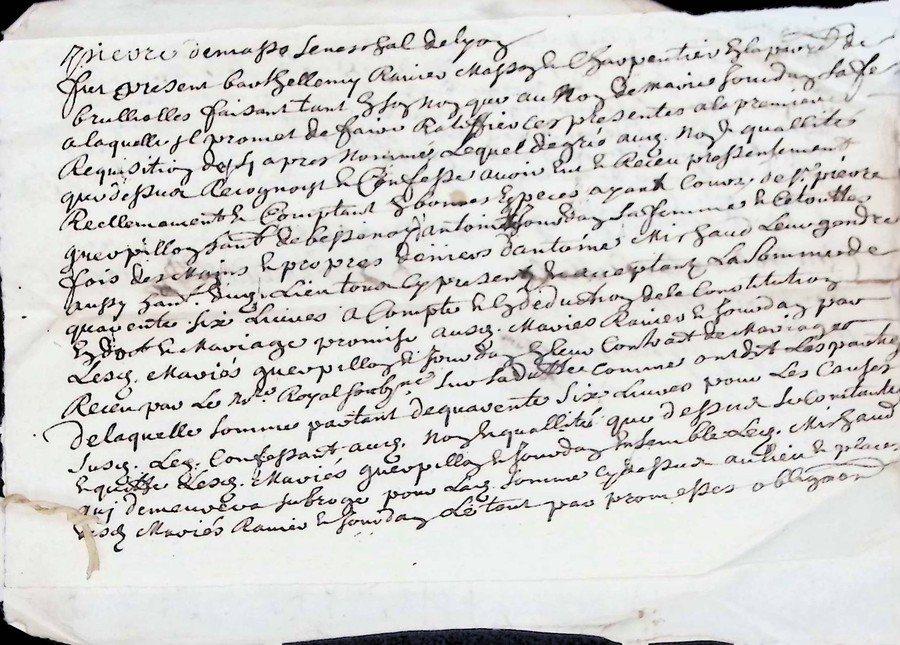 pierre demasso seneschal de lyon
fut present barthellemy Ranier Masson & Charpentier de la parr. de
brulliolles faisant tant en son Nom que au Nom de Marie Jourdan sa fe
a laquelle il promet de faire Ratiffier ces presentes a la premiere
Requisition des cy apres Nommés Lequel de gré ausd. Noms & quallites
que dessus Recognoist & Confesse avoir heu & Receu presentement
Reellemant & Comptant en bonnes Especes ayant Cours de sr. pierre
guerpillon hant. de bessenay d'antoinette Jourdan sa femme & Cetouttes
fois des Mains & propres deniers d'antoine Michaud Leur gendre
aussy hant. dud. Lieu tous Cy presents & acceptant La Somme de
quarente six Livres a Compte & En deduction de la Constitution
En dot de Mariage promise ausd. Mariés Ranier & Jourdan par
Lesd. Mariés guerpillon & Jourdan & leur Contrat de Mariage
Receu par Le Nre. Royal soubsné sur sa datte Comme ont dit Les parties
de laquelle somme partant de quarente six Livres pour Les Causes
susd. Led. Confessant ausd. Noms & quallités que dessus se Contante
& quitte Lesd. Mariés guerpillon & Jourdan Ensemble Led. Michaud
qui demeurera subrogé pour Lad. somme cy dessus au lieu & place
desd. Mariés Ranier & Jourdan Le tout par promesses obligaon